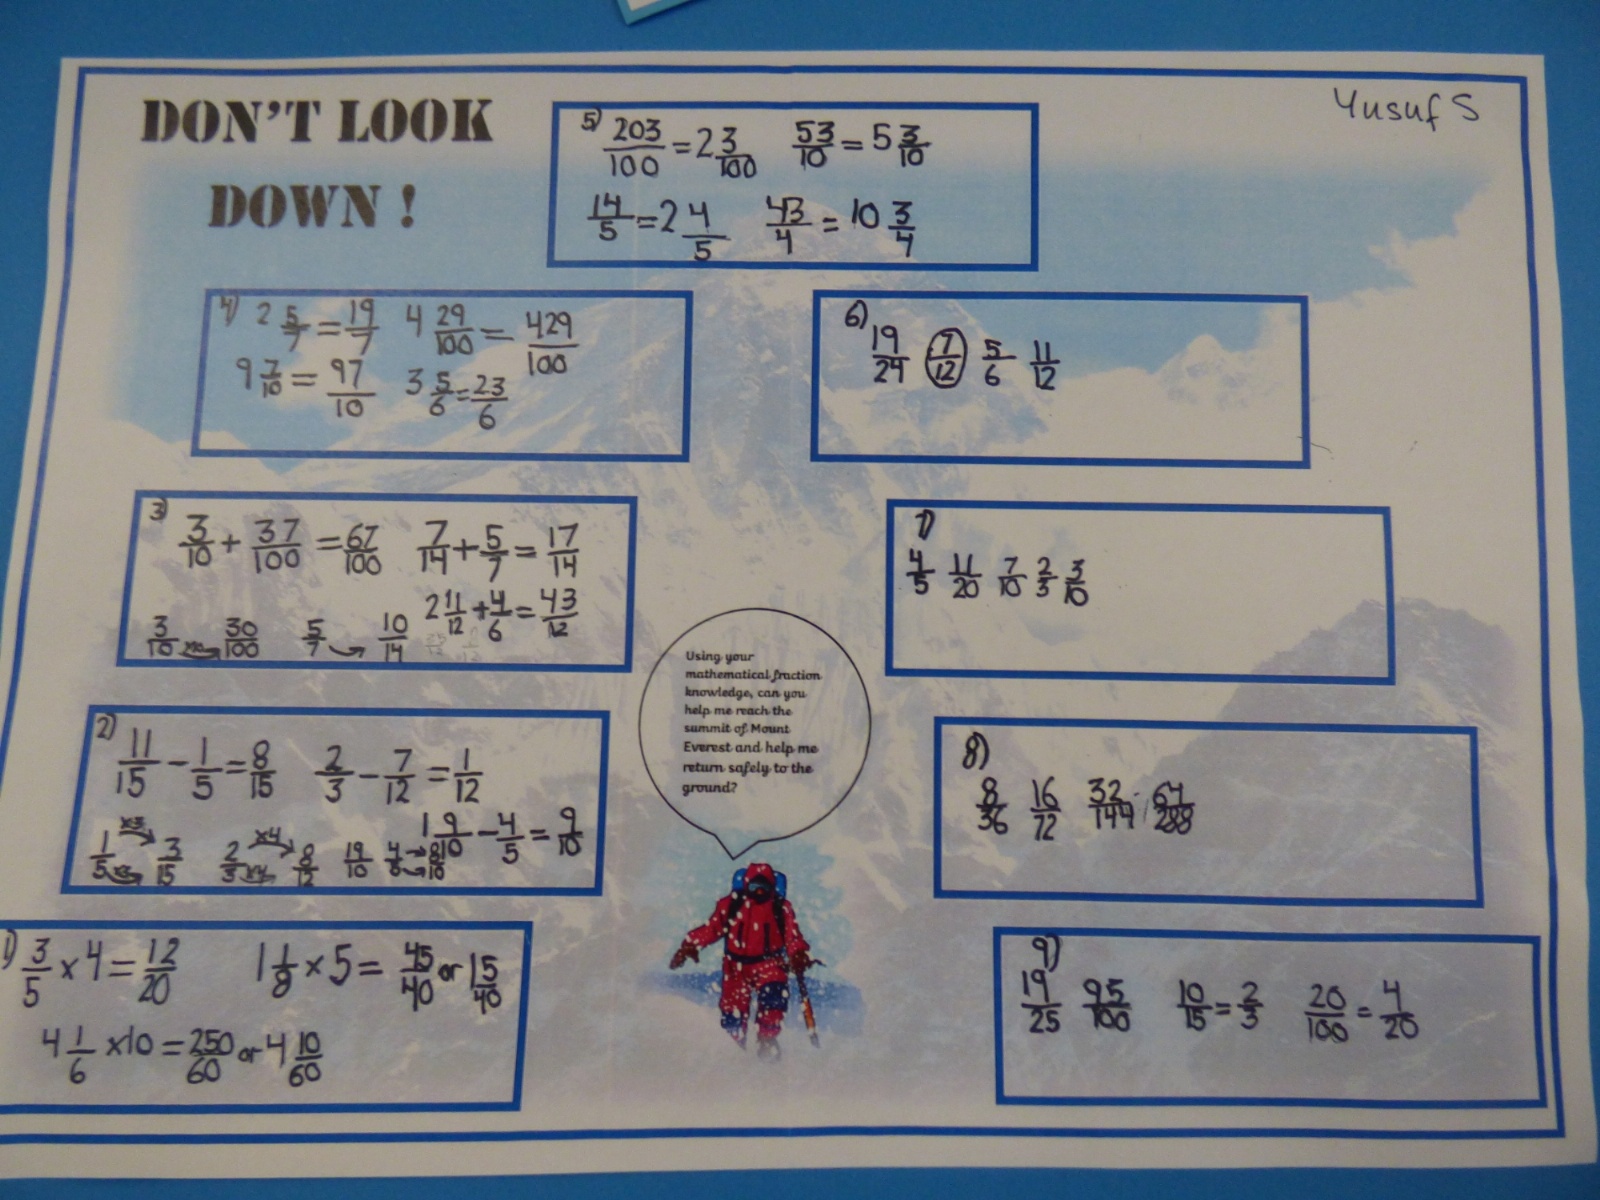 DON'T LOOK
DOWN !
Yusuf S
5) 203/100 = 2 3/100 53/10 = 5 3/10
14/5 = 2 4/5 43/4 = 10 3/4
4) 2 5/7 = 19/7 4 29/100 = 429/100
9 7/10 = 97/10 3 5/6 = 23/6
6) 19/24 7/12 5/6 11/12
3) 3/10 + 37/100 = 67/100 7/14 + 5/7 = 17/14
2 11/12 + 4/6 = 43/12
3/10 30/100 5/7 10/14
7) 4/5 11/20 7/10 2/3 3/10
Using your
mathematical fraction
knowledge, can you
help me reach the
summit of Mount
Everest and help me
return safely to the
ground?
2) 11/15 - 1/5 = 8/15 2/3 - 7/12 = 1/12
1 9/10 - 4/5 = 9/10
1/5 3/15 2/3 x4 8/12 19/10 4/5 8/10
8) 8/36 16/72 32/144 64/288
1) 3/5 x 4 = 12/20 1 1/8 x 5 = 45/40 or 1 5/40
4 1/6 x 10 = 250/60 or 4 10/60
9) 19/25 95/100 10/15 = 2/3 20/100 = 4/20